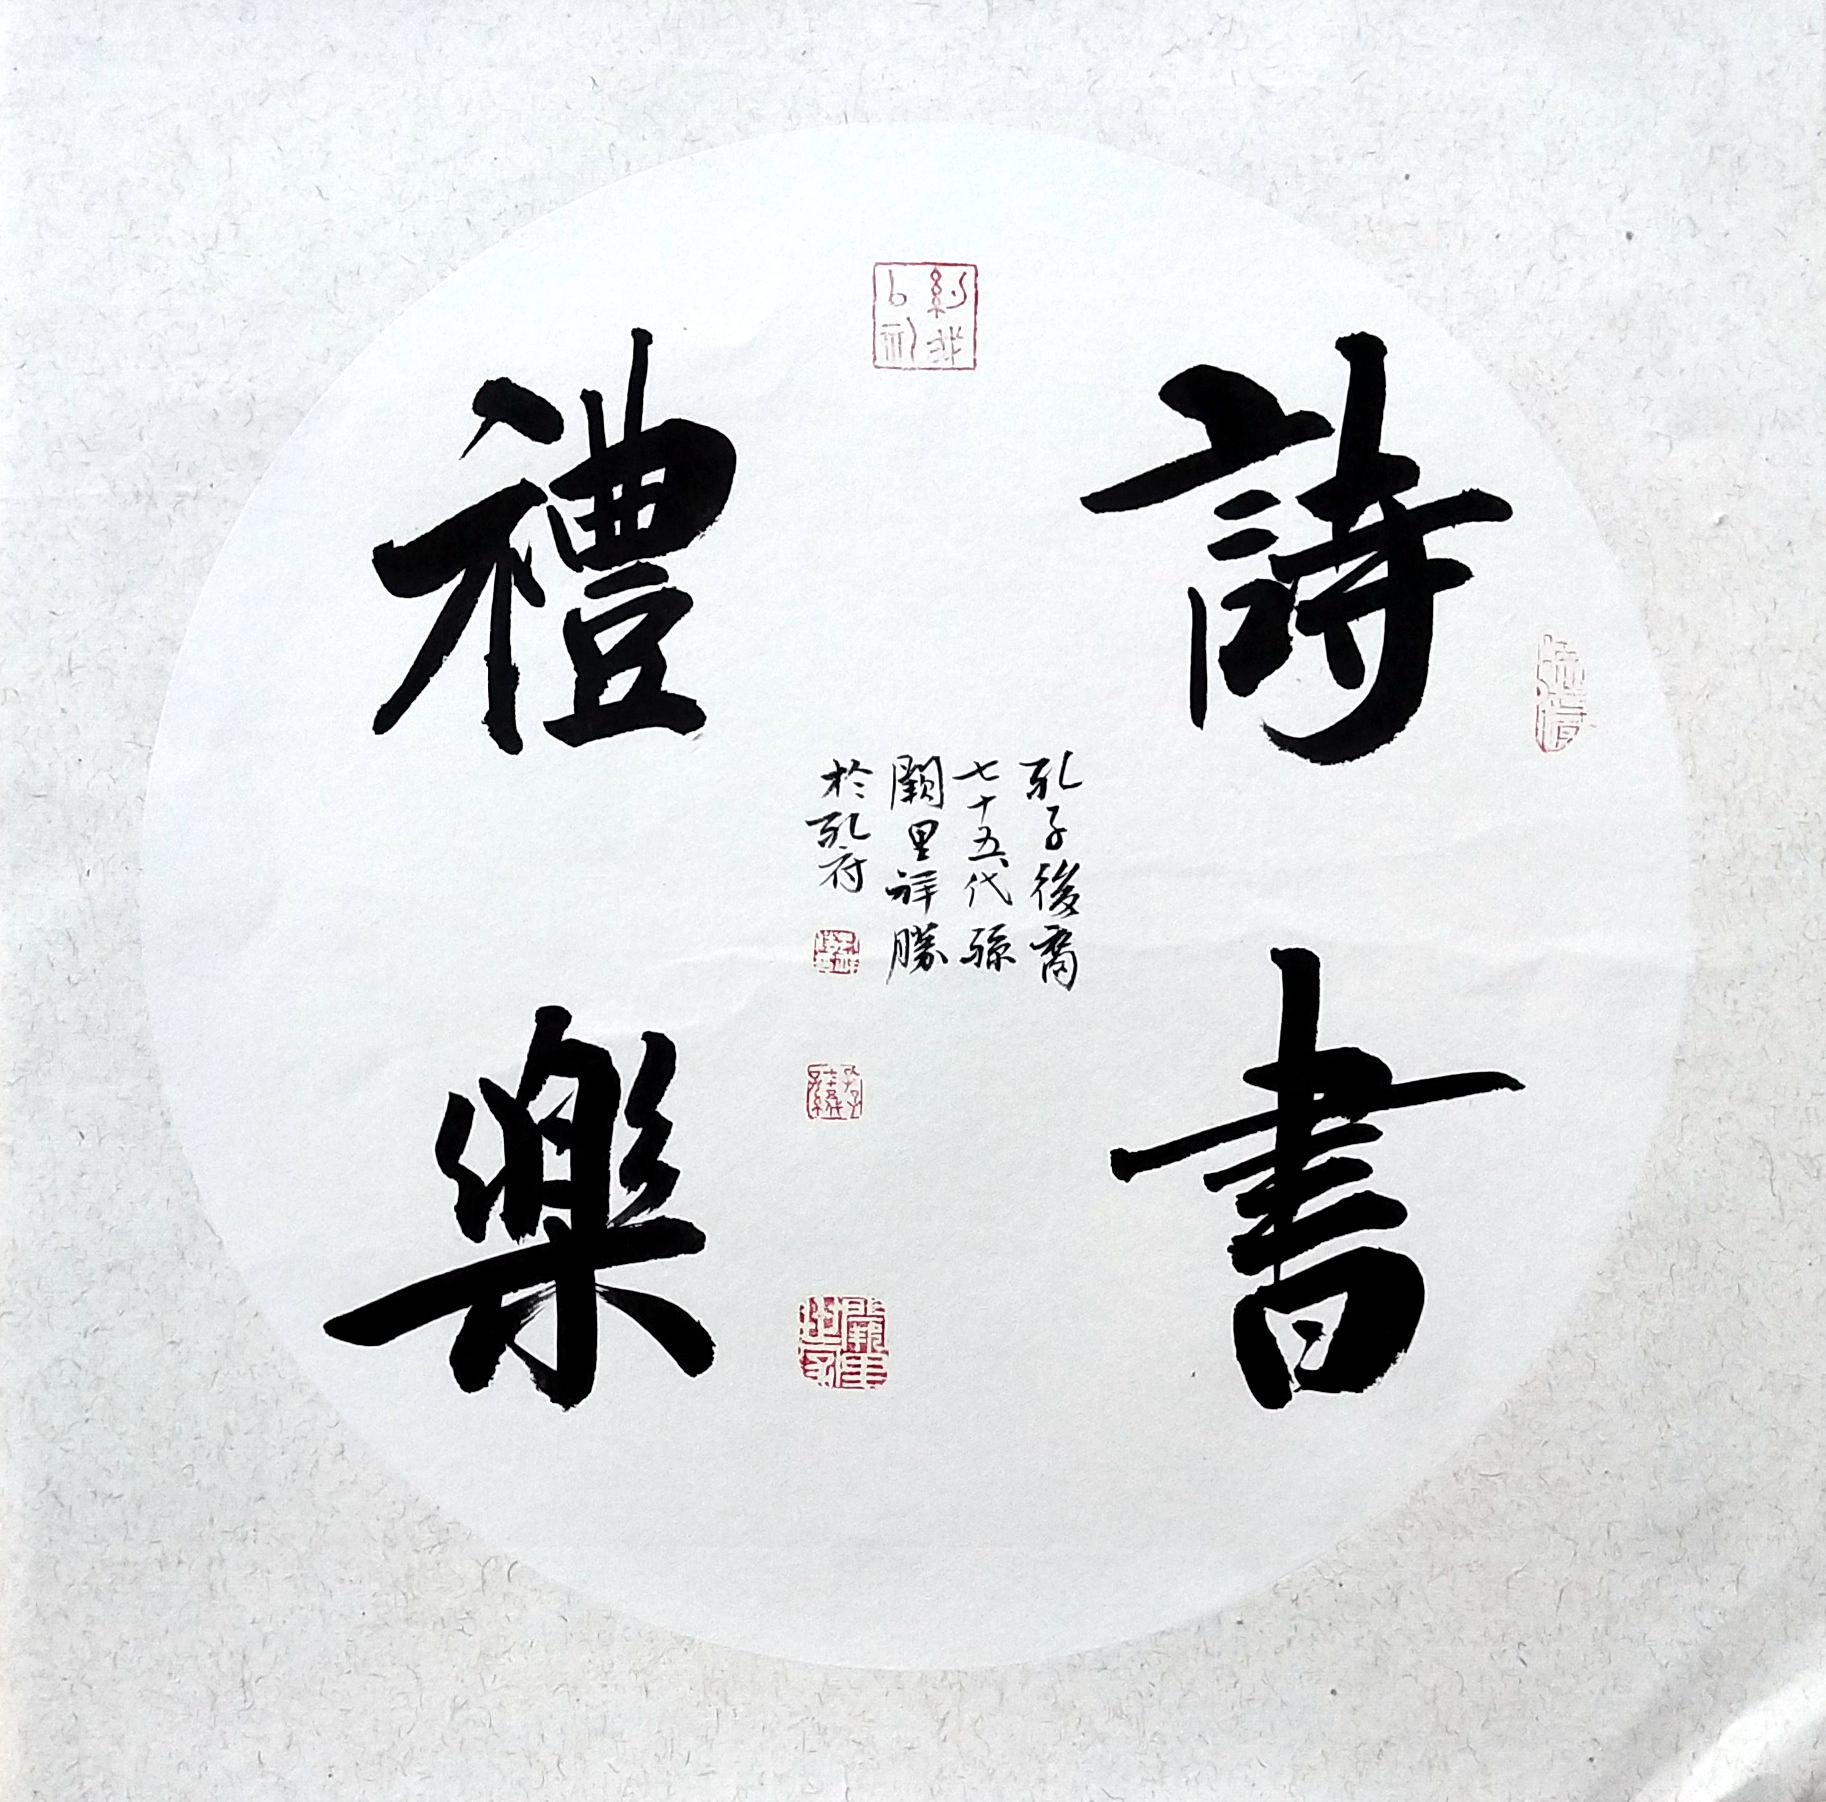 詩書
禮樂
孔子後裔
七十五代孫
闕里祥勝
於孔府
約我以禮